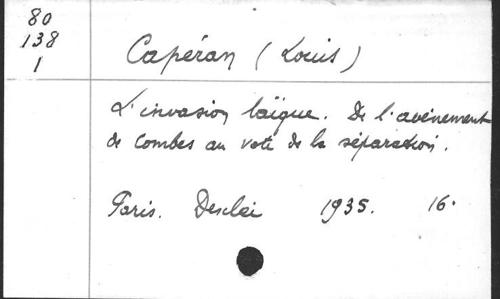 80
138
1
Capéran (Louis)
L'invasion laïque. De l'avènement
de Combes au vote de la séparation.
Paris. Desclée 1935. 16°